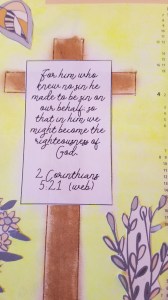 For him who
knew no sin he
made to be sin on
our behalf; so
that in him we
might become the
righteousness of
God.
2 Corinthians
5:21 (web)